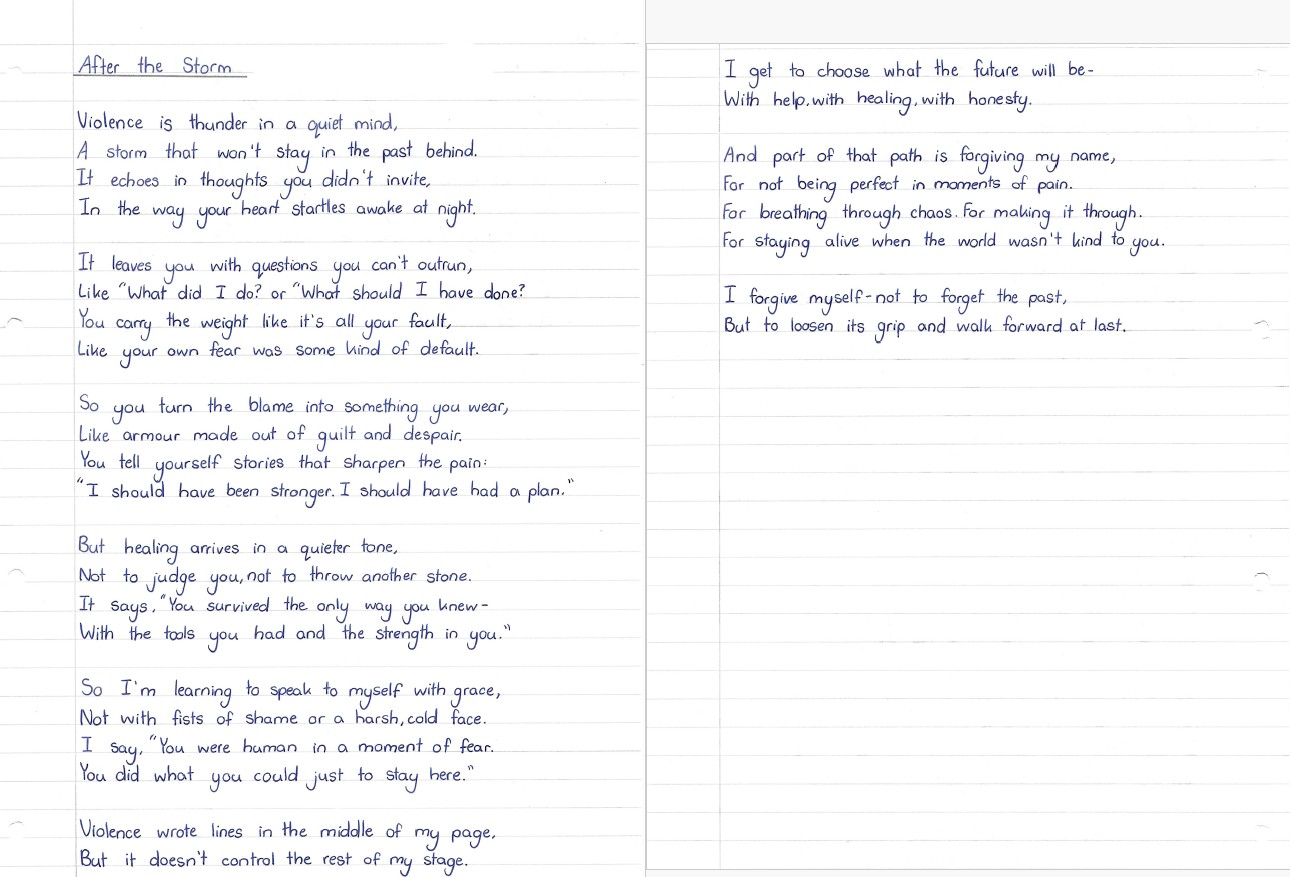 After the Storm
Violence is thunder in a quiet mind,
A storm that won't stay in the past behind.
It echoes in thoughts you didn't invite,
In the way your heart startles awake at night.
It leaves you with questions you can't outrun,
Like "What did I do? or "What should I have done?
You carry the weight like it's all your fault,
Like your own fear was some kind of default.
So you turn the blame into something you wear,
Like armour made out of guilt and despair.
You tell yourself stories that sharpen the pain:
"I should have been stronger. I should have had a plan."
But healing arrives in a quieter tone,
Not to judge you, not to throw another stone.
It says, "You survived the only way you knew-
With the tools you had and the strength in you."
So I'm learning to speak to myself with grace,
Not with fists of shame or a harsh, cold face.
I say, "You were human in a moment of fear.
You did what you could just to stay here."
Violence wrote lines in the middle of my page,
But it doesn't control the rest of my stage.
I get to choose what the future will be-
With help, with healing, with honesty.
And part of that path is forgiving my name,
For not being perfect in moments of pain.
For breathing through chaos. For making it through.
For staying alive when the world wasn't kind to you.
I forgive myself-not to forget the past,
But to loosen its grip and walk forward at last.